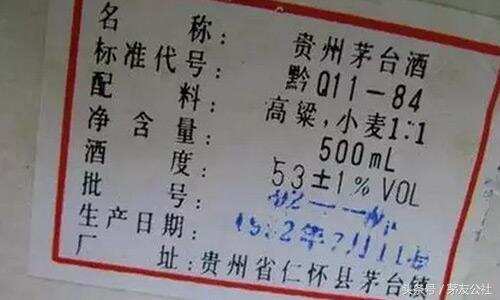 名称：贵州茅台酒
标准代号：黔Q11-84
配料：高粱，小麦1:1
净含量：500mL
酒度：53±1%VOL
批号：
生产日期：
厂址：贵州省仁怀县茅台镇
头条号／茅友公社